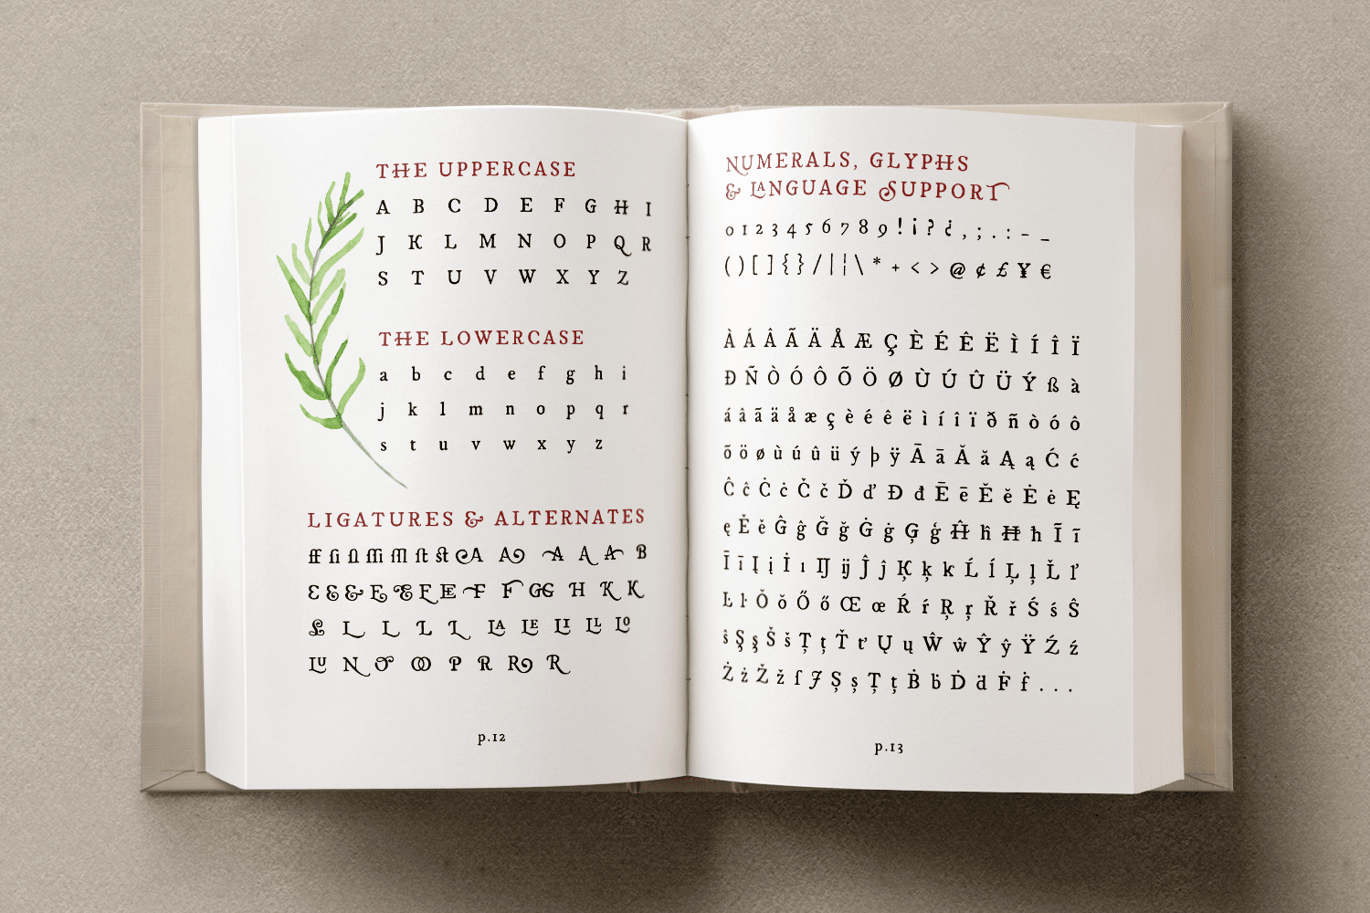 THE UPPERCASE
A B C D E F G H I
J K L M N O P Q R
S T U V W X Y Z
THE LOWERCASE
a b c d e f g h i
j k l m n o p q r
s t u v w x y z
LIGATURES & ALTERNATES
A A A A A B
& & & E E E E F F GG H K K
L L L L LA LE LI LL LO
LU N O OO P R R R
p.12
NUMERALS, GLYPHS
& LANGUAGE SUPPORT
0 1 2 3 4 5 6 7 8 9 ! ¡ ? ¿ , ; . : – _
( ) [ ] { } / | ¦ \ * + < > @ ¢ £ ¥ €
À Á Â Ã Ä Å Æ Ç È É Ê Ë Ì Í Î Ï
Ð Ñ Ò Ó Ô Õ Ö Ø Ù Ú Û Ü Ý ß à
á â ã ä å æ ç è é ê ë ì í î ï ð ñ ò ó ô
õ ö ø ù ú û ü ý þ ÿ Ā ā Ă ă Ą ą Ć ć
Ĉ ĉ Ċ ċ Č č Ď ď Đ đ Ē ē Ĕ ĕ Ė ė Ę
ę Ě ě Ĝ ĝ Ğ ğ Ġ ġ Ģ ģ Ĥ ĥ Ħ ħ Ĩ ĩ
Ī ī Į į İ ı Ĳ ĳ Ĵ ĵ Ķ ķ ĸ Ĺ ĺ Ļ ļ Ľ ľ
Ŀ ŀ Ŏ ŏ Ő ő Œ œ Ŕ ŕ Ŗ ŗ Ř ř Ś ś Ŝ
ŝ Ş ş Š š Ţ ţ Ť ť Ų ų Ŵ ŵ Ŷ ŷ Ÿ Ź ź
Ż ż Ž ž ſ Ƒ Ș ș Ț ț Ḃ ḃ Ḋ ḋ Ḟ ḟ . . .
p.13